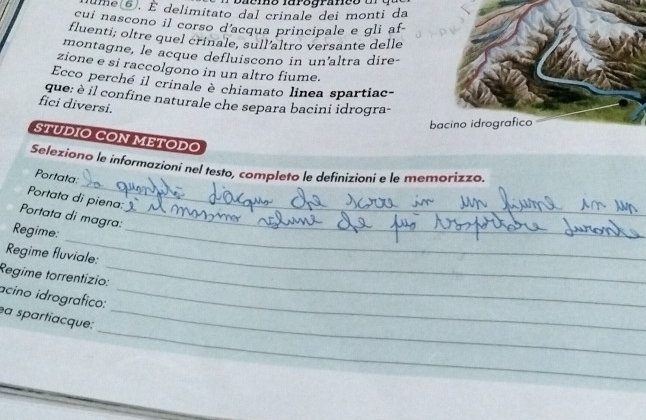 fiume (6). È delimitato dal crinale dei monti da
cui nascono il corso d'acqua principale e gli af-
fluenti; oltre quel crinale, sull'altro versante delle
montagne, le acque defluiscono in un'altra dire-
zione e si raccolgono in un altro fiume.
Ecco perché il crinale è chiamato linea spartiac-
que: è il confine naturale che separa bacini idrogra-
fici diversi.
bacino idrografico
STUDIO CON METODO
Seleziono le informazioni nel testo, completo le definizioni e le memorizzo.
Portata: la quantità d'acqua che scorre in un fiume in un
Portata di piena: è il massimo volume che può trasportare durante
Portata di magra:
Regime:
Regime fluviale:
Regime torrentizio:
acino idrografico:
ea spartiacque: